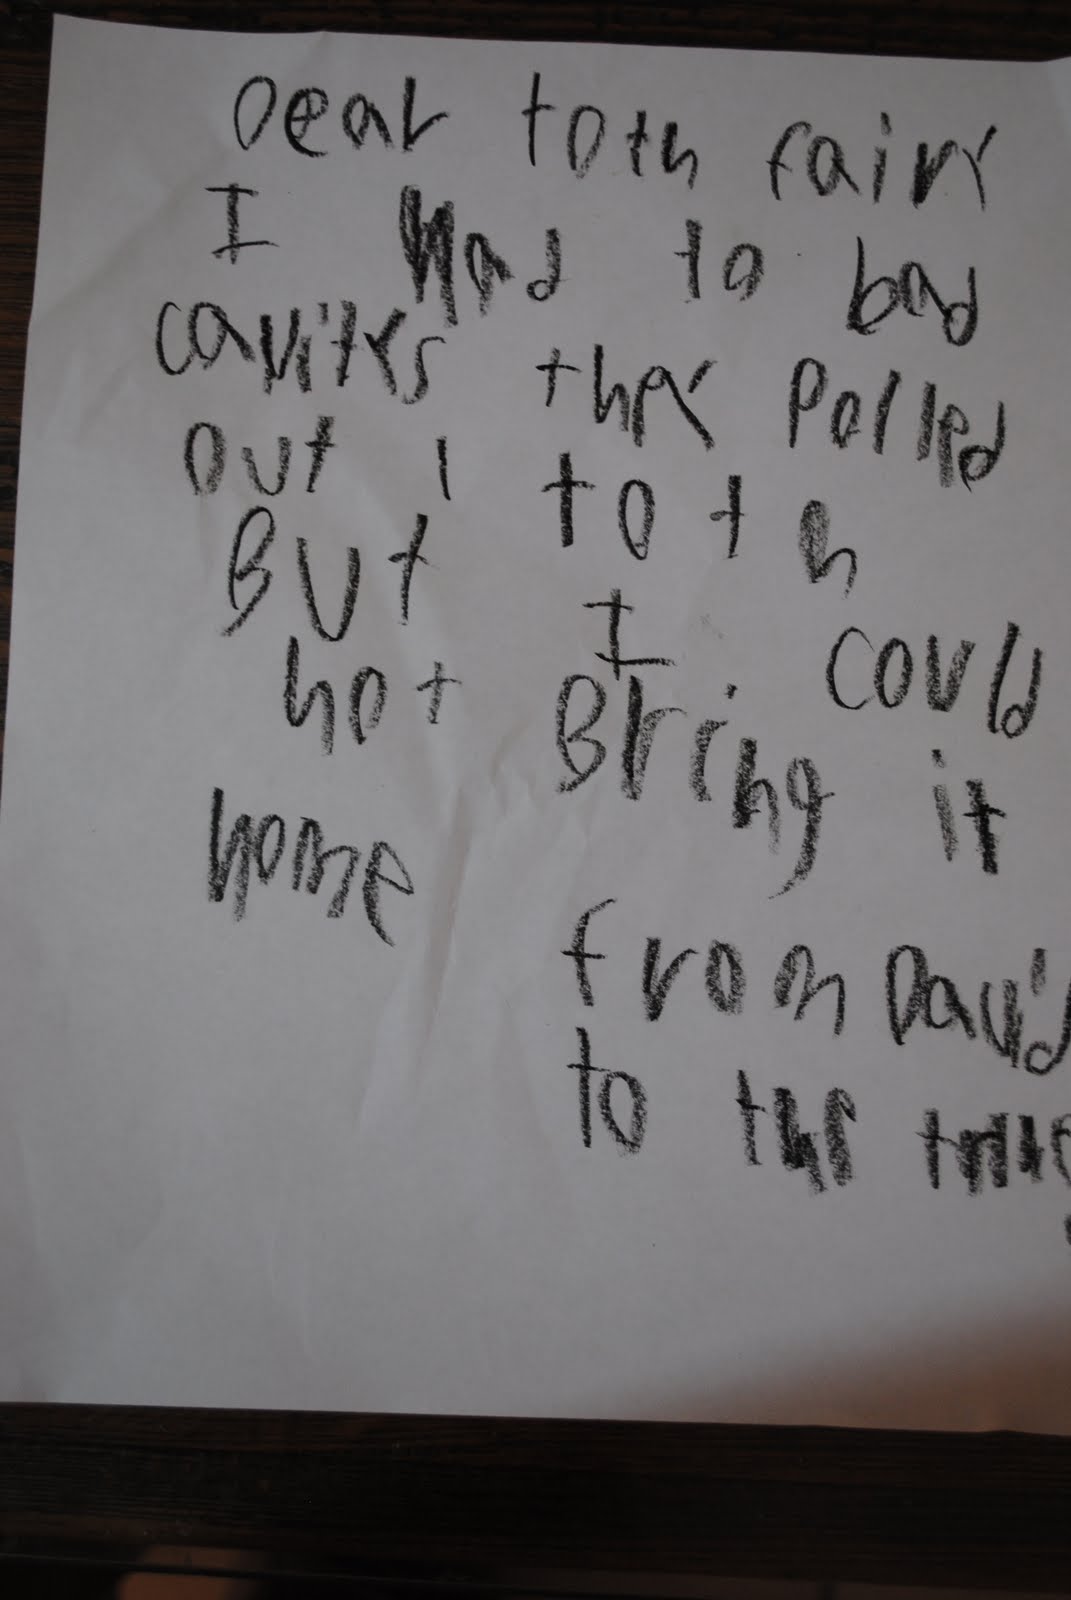 Dear toth fairy
I Had to bad
cavitys they polled
out 1 toth
But I could
not Bring it
home
from David
to the